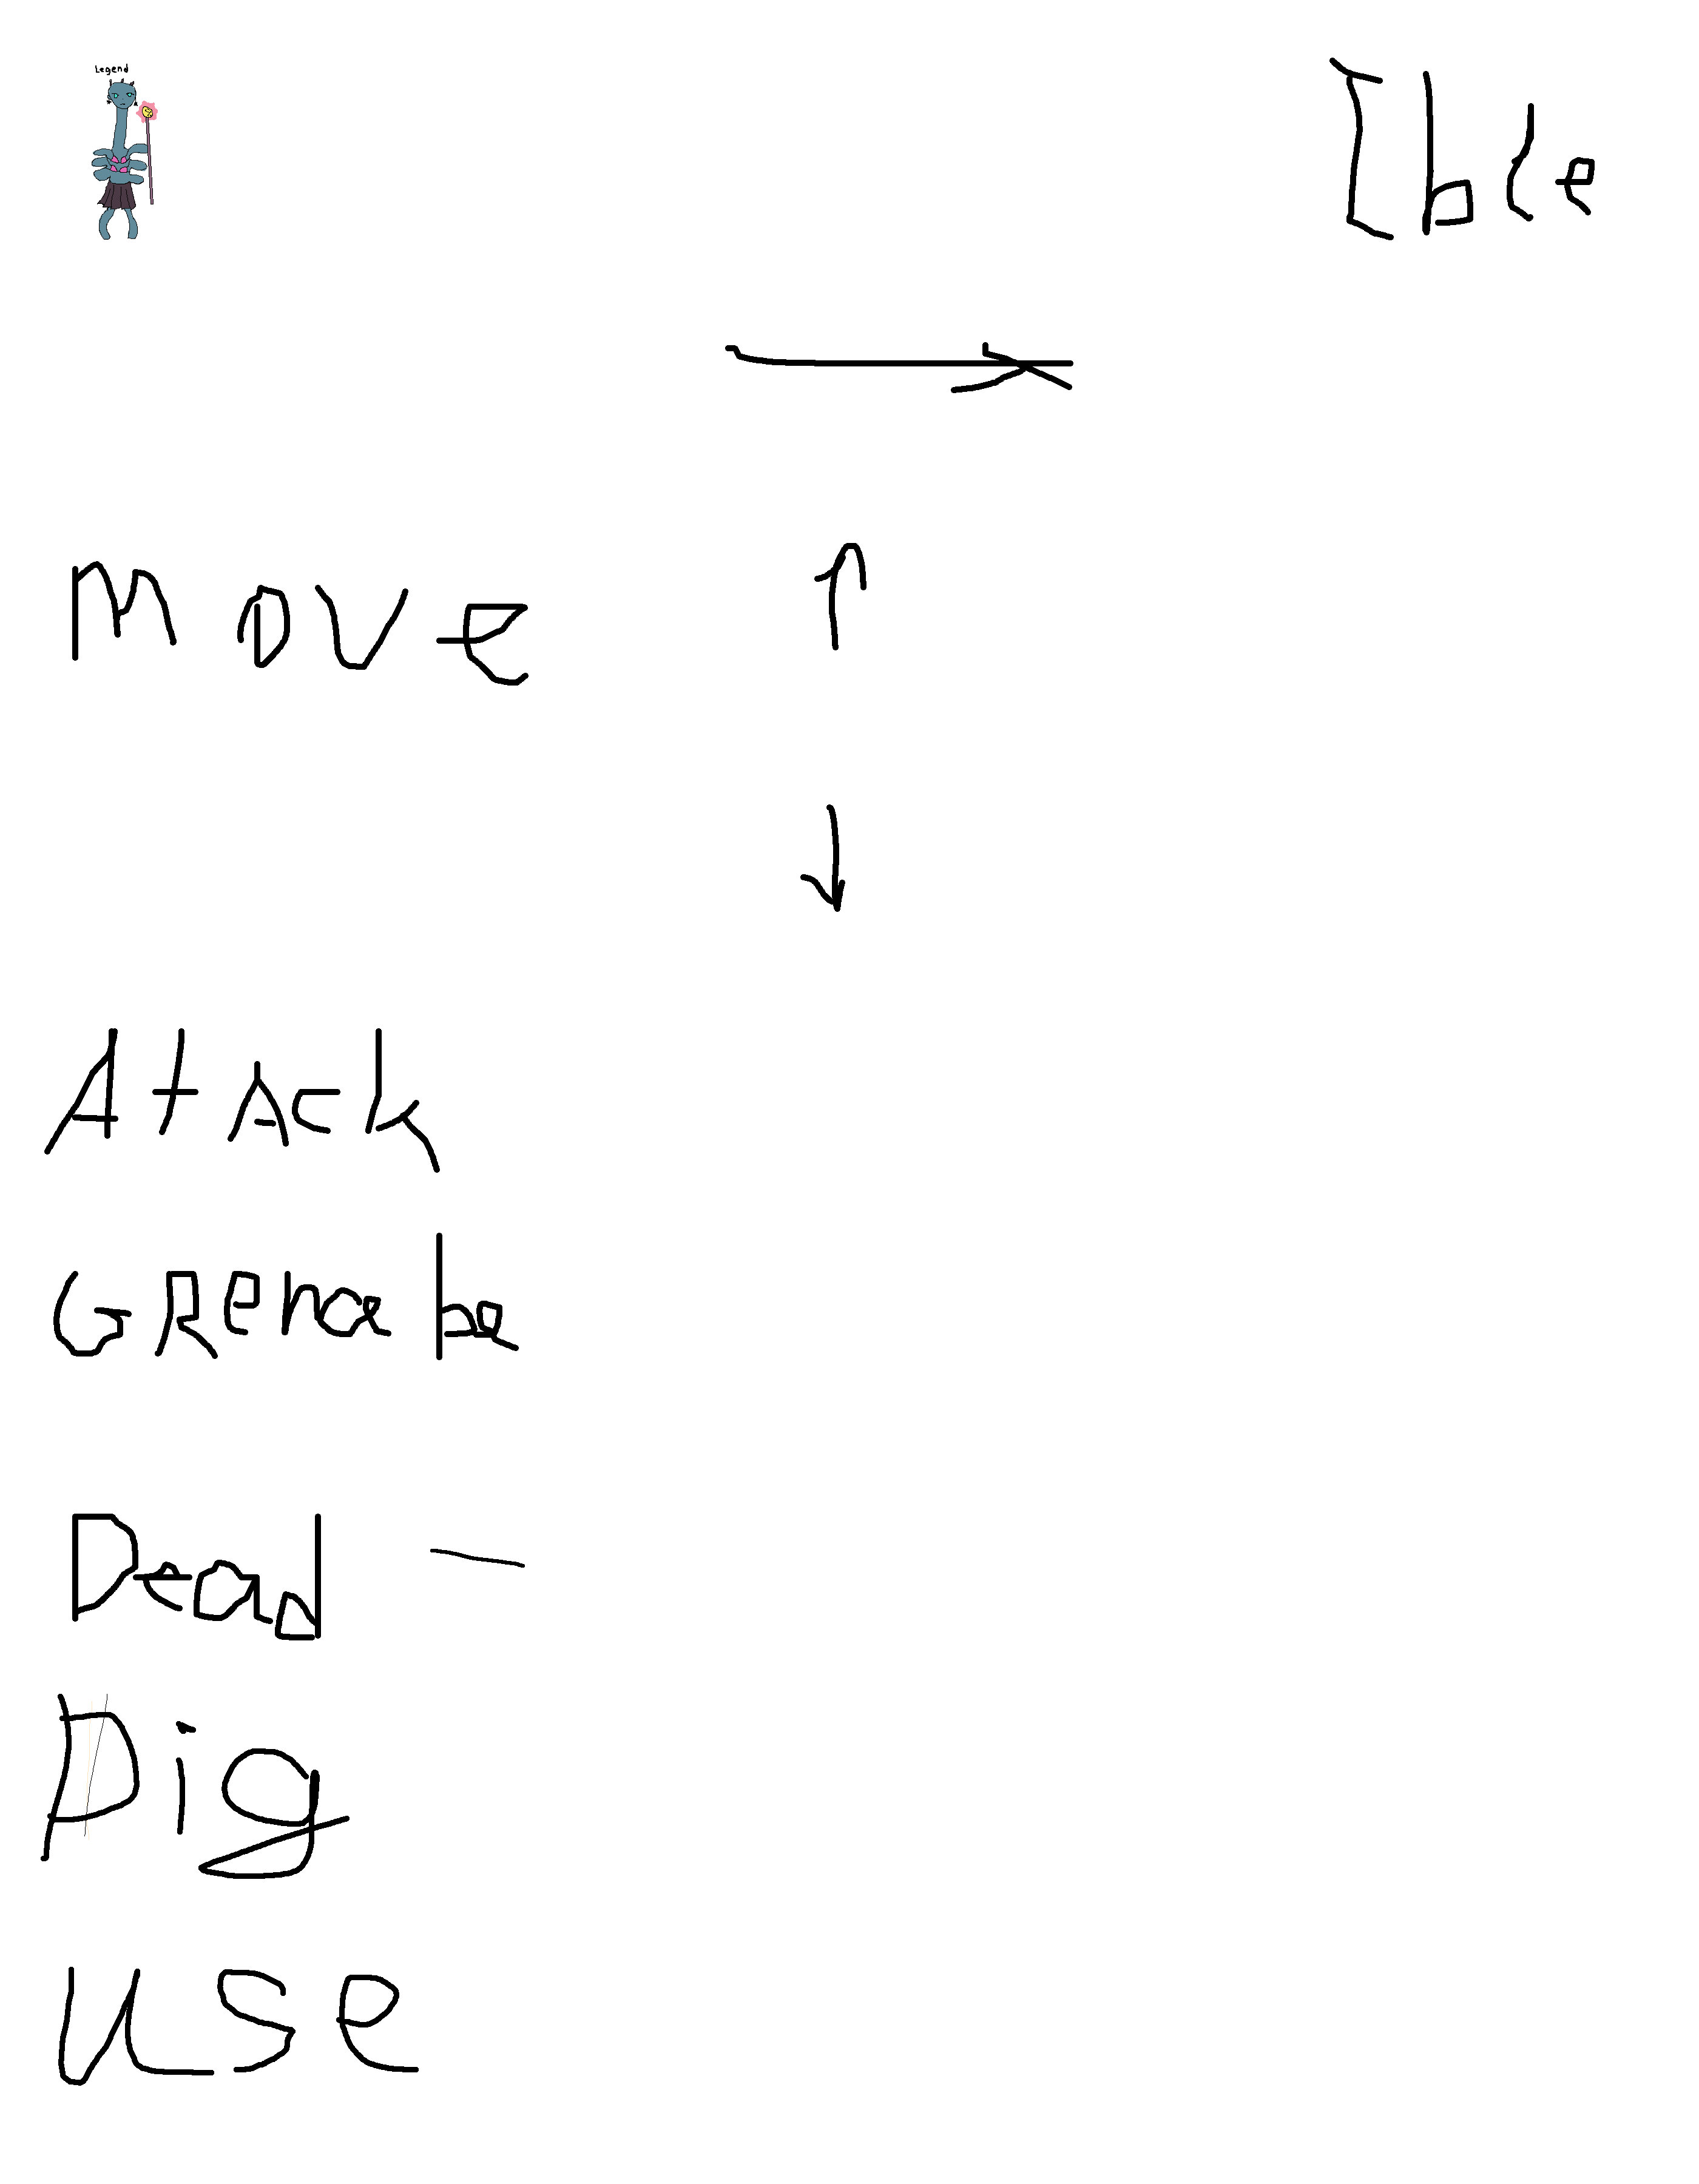 Legend
Ible
Move
Atack
GRenabe
Dead
Dig
use